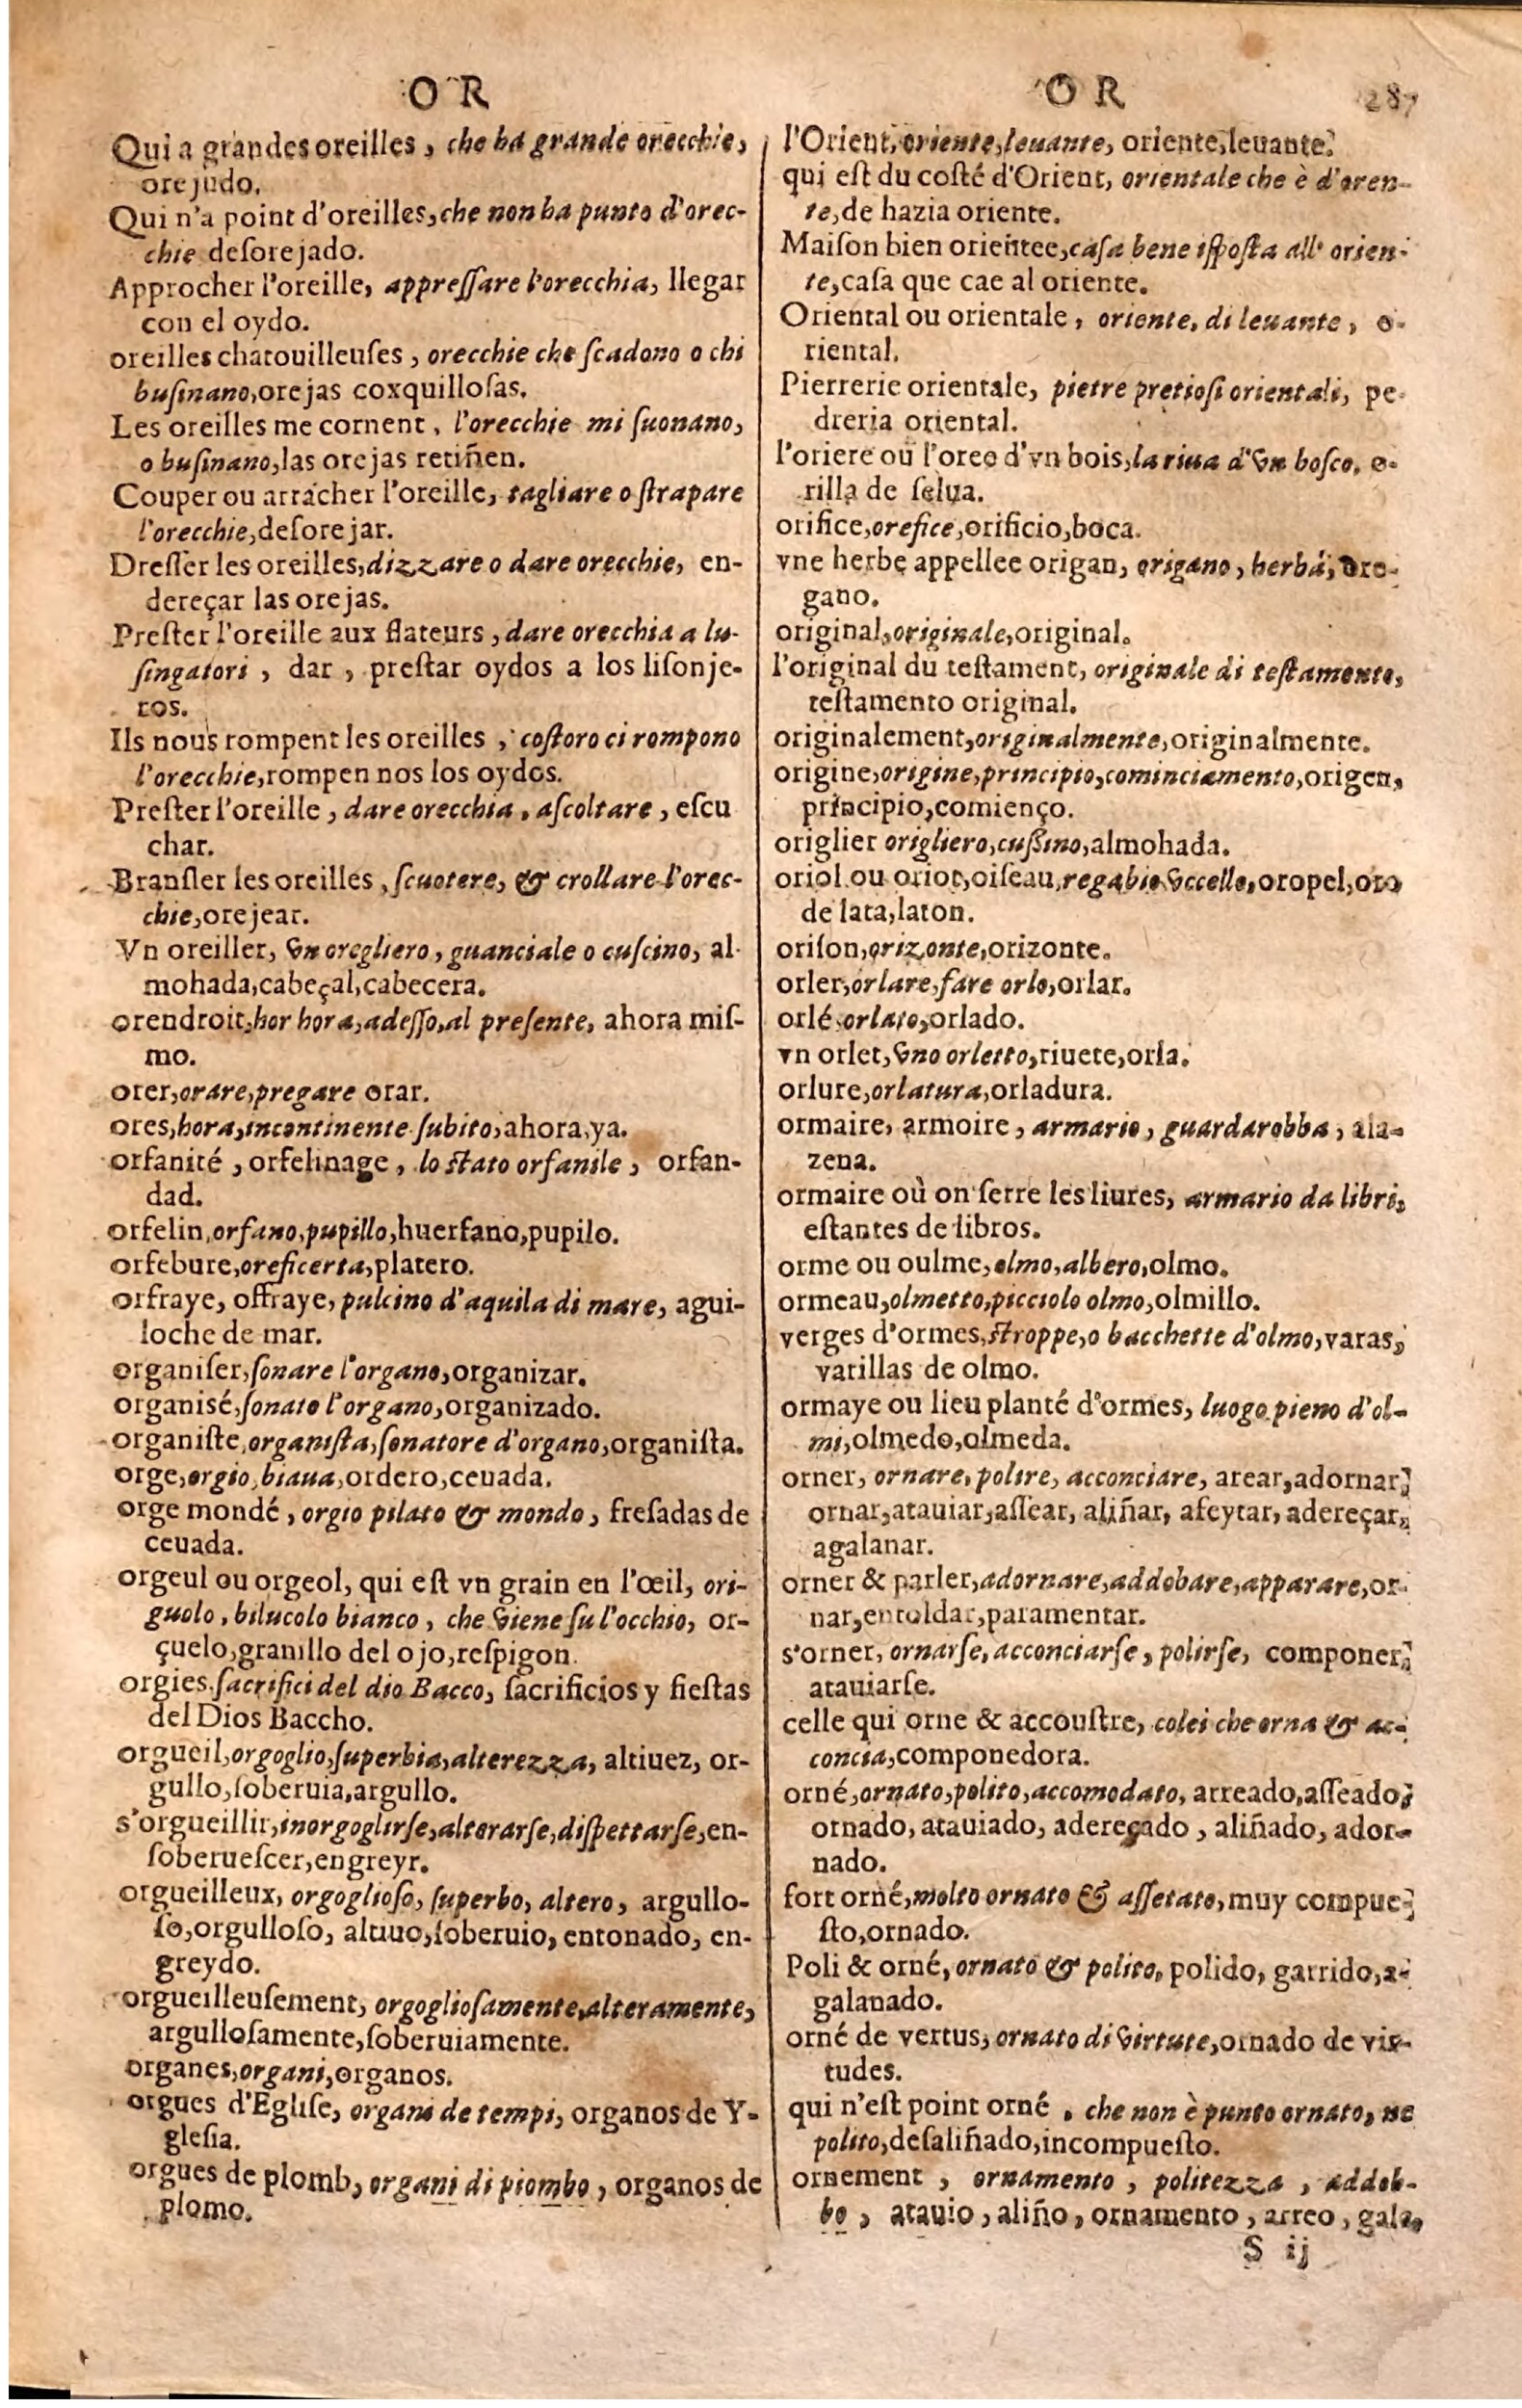 OR
Qui a grandes oreilles, che ha grande orecchie,
orejudo.
Qui n'a point d'oreilles, che non ha punto d'orec-
chie desorejado.
Approcher l'oreille, appreſſare l'orecchia, llegar
con el oydo.
oreilles chatouilleuſes, orecchie che ſcadono o chi
buſinano, orejas coxquilloſas.
Les oreilles me cornent, l'orecchie mi ſuonano,
o buſinano, las orejas retiñen.
Couper ou arracher l'oreille, tagliare o ſtrapare
l'orecchie, deſorejar.
Dreſſer les oreilles, dizzare o dare orecchie, en-
dereçar las orejas.
Preſter l'oreille aux flateurs, dare orecchia a lu-
ſingatori, dar, preſtar oydos a los liſonje-
ros.
Ils nous rompent les oreilles, coſtoro ci rompono
l'orecchie, rompen nos los oydos.
Preſter l'oreille, dare orecchia, aſcoltare, eſcu
char.
Branſler les oreilles, ſcuotere, & crollare l'orec-
chie, orejear.
Vn oreiller, vn oregliero, guanciale o cuſcino, al-
mohada, cabeçal, cabecera.
orendroit, hor hora, adeſſo, al preſente, ahora miſ-
mo.
orer, orare, pregare orar.
ores, hora, incontinente ſubito, ahora, ya.
orfanité, orfelinage, lo ſtato orfanile, orfan-
dad.
orfelin, orfano, pupillo, huerfano, pupilo.
orfebure, oreficerta, platero.
orfraye, offraye, pulcino d'aquila di mare, agui-
loche de mar.
organiſer, ſonare l'organo, organizar.
organisé, ſonato l'organo, organizado.
organiſte, organiſta, ſonatore d'organo, organiſta.
orge, orgio, biaua, ordero, ceuada.
orge mondé, orgio pilato & mondo, freſadas de
ceuada.
orgeul ou orgeol, qui eſt vn grain en l'œil, ori-
guolo, bilucolo bianco, che viene ſu l'occhio, or-
çuelo, granillo del ojo, reſpigon.
orgies, ſacrifici del dio Bacco, ſacrificios y fieſtas
del Dios Baccho.
orgueil, orgoglio, ſuperbia, alterezza, altiuez, or-
gullo, ſoberuia, argullo.
s'orgueillir, inorgoglirſe, alterarſe, diſpettarſe, en-
ſoberueſcer, engreyr.
orgueilleux, orgoglioſo, ſuperbo, altero, argullo-
ſo, orgulloſo, altiuo, ſoberuio, entonado, en-
greydo.
orgueilleuſement, orgoglioſamente, alteramente,
argulloſamente, ſoberuiamente.
organes, organi, organos.
orgues d'Egliſe, organi de tempi, organos de Y-
gleſia.
orgues de plomb, organi di piombo, organos de
plomo.
OR 287
l'Orient, oriente, leuante, oriente, leuante.
qui eſt du coſté d'Orient, orientale che è d'oren-
te, de hazia oriente.
Maiſon bien orientee, caſa bene iſpoſta all' orien-
te, caſa que cae al oriente.
Oriental ou orientale, oriente, di leuante, o-
riental.
Pierrerie orientale, pietre pretioſi orientali, pe-
dreria oriental.
l'oriere ou l'oree d'vn bois, la riua d'vn boſco, o-
rilla de ſelua.
orifice, orefice, orificio, boca.
vne herbe appellee origan, origano, herba, ore-
gano.
original, originale, original.
l'original du teſtament, originale di teſtamento,
teſtamento original.
originalement, originalmente, originalmente.
origine, origine, principio, cominciamento, origen,
principio, comienço.
origlier origliero, cuſſino, almohada.
oriol ou oriot, oiſeau, regabio vccello, oropel, oro
de lata, laton.
oriſon, orizonte, orizonte.
orler, orlare, fare orlo, orlar.
orlé, orlato, orlado.
vn orlet, vno orletto, riuete, orla.
orlure, orlatura, orladura.
ormaire, armoire, armario, guardarobba, ala-
zena.
ormaire où on ſerre les liures, armario da libri,
eſtantes de libros.
orme ou oulme, olmo, albero, olmo.
ormeau, olmetto, picciolo olmo, olmillo.
verges d'ormes, ſtroppe, o bacchette d'olmo, varas,
varillas de olmo.
ormaye ou lieu planté d'ormes, luogo pieno d'ol-
mi, olmedo, olmeda.
orner, ornare, polire, acconciare, arear, adornar,
ornar, atauiar, aſſear, aliñar, afeytar, adereçar,
agalanar.
orner & parler, adornare, addobare, apparare, or-
nar, entoldar, paramentar.
s'orner, ornarſe, acconciarſe, polirſe, componer,
atauiarſe.
celle qui orne & accouſtre, colei che orna & ac-
concia, componedora.
orné, ornato, polito, accomodato, arreado, aſſeado,
ornado, atauiado, adereçado, aliñado, ador-
nado.
fort orné, molto ornato & aſſetato, muy compue-
ſto, ornado.
Poli & orné, ornato & polito, polido, garrido, a-
galanado.
orné de vertus, ornato di virtute, ornado de vir-
tudes.
qui n'eſt point orné, che non è punto ornato, ne
polito, deſaliñado, incompueſto.
ornement, ornamento, politezza, addob-
bo, atauio, aliño, ornamento, arreo, gala,
S ij